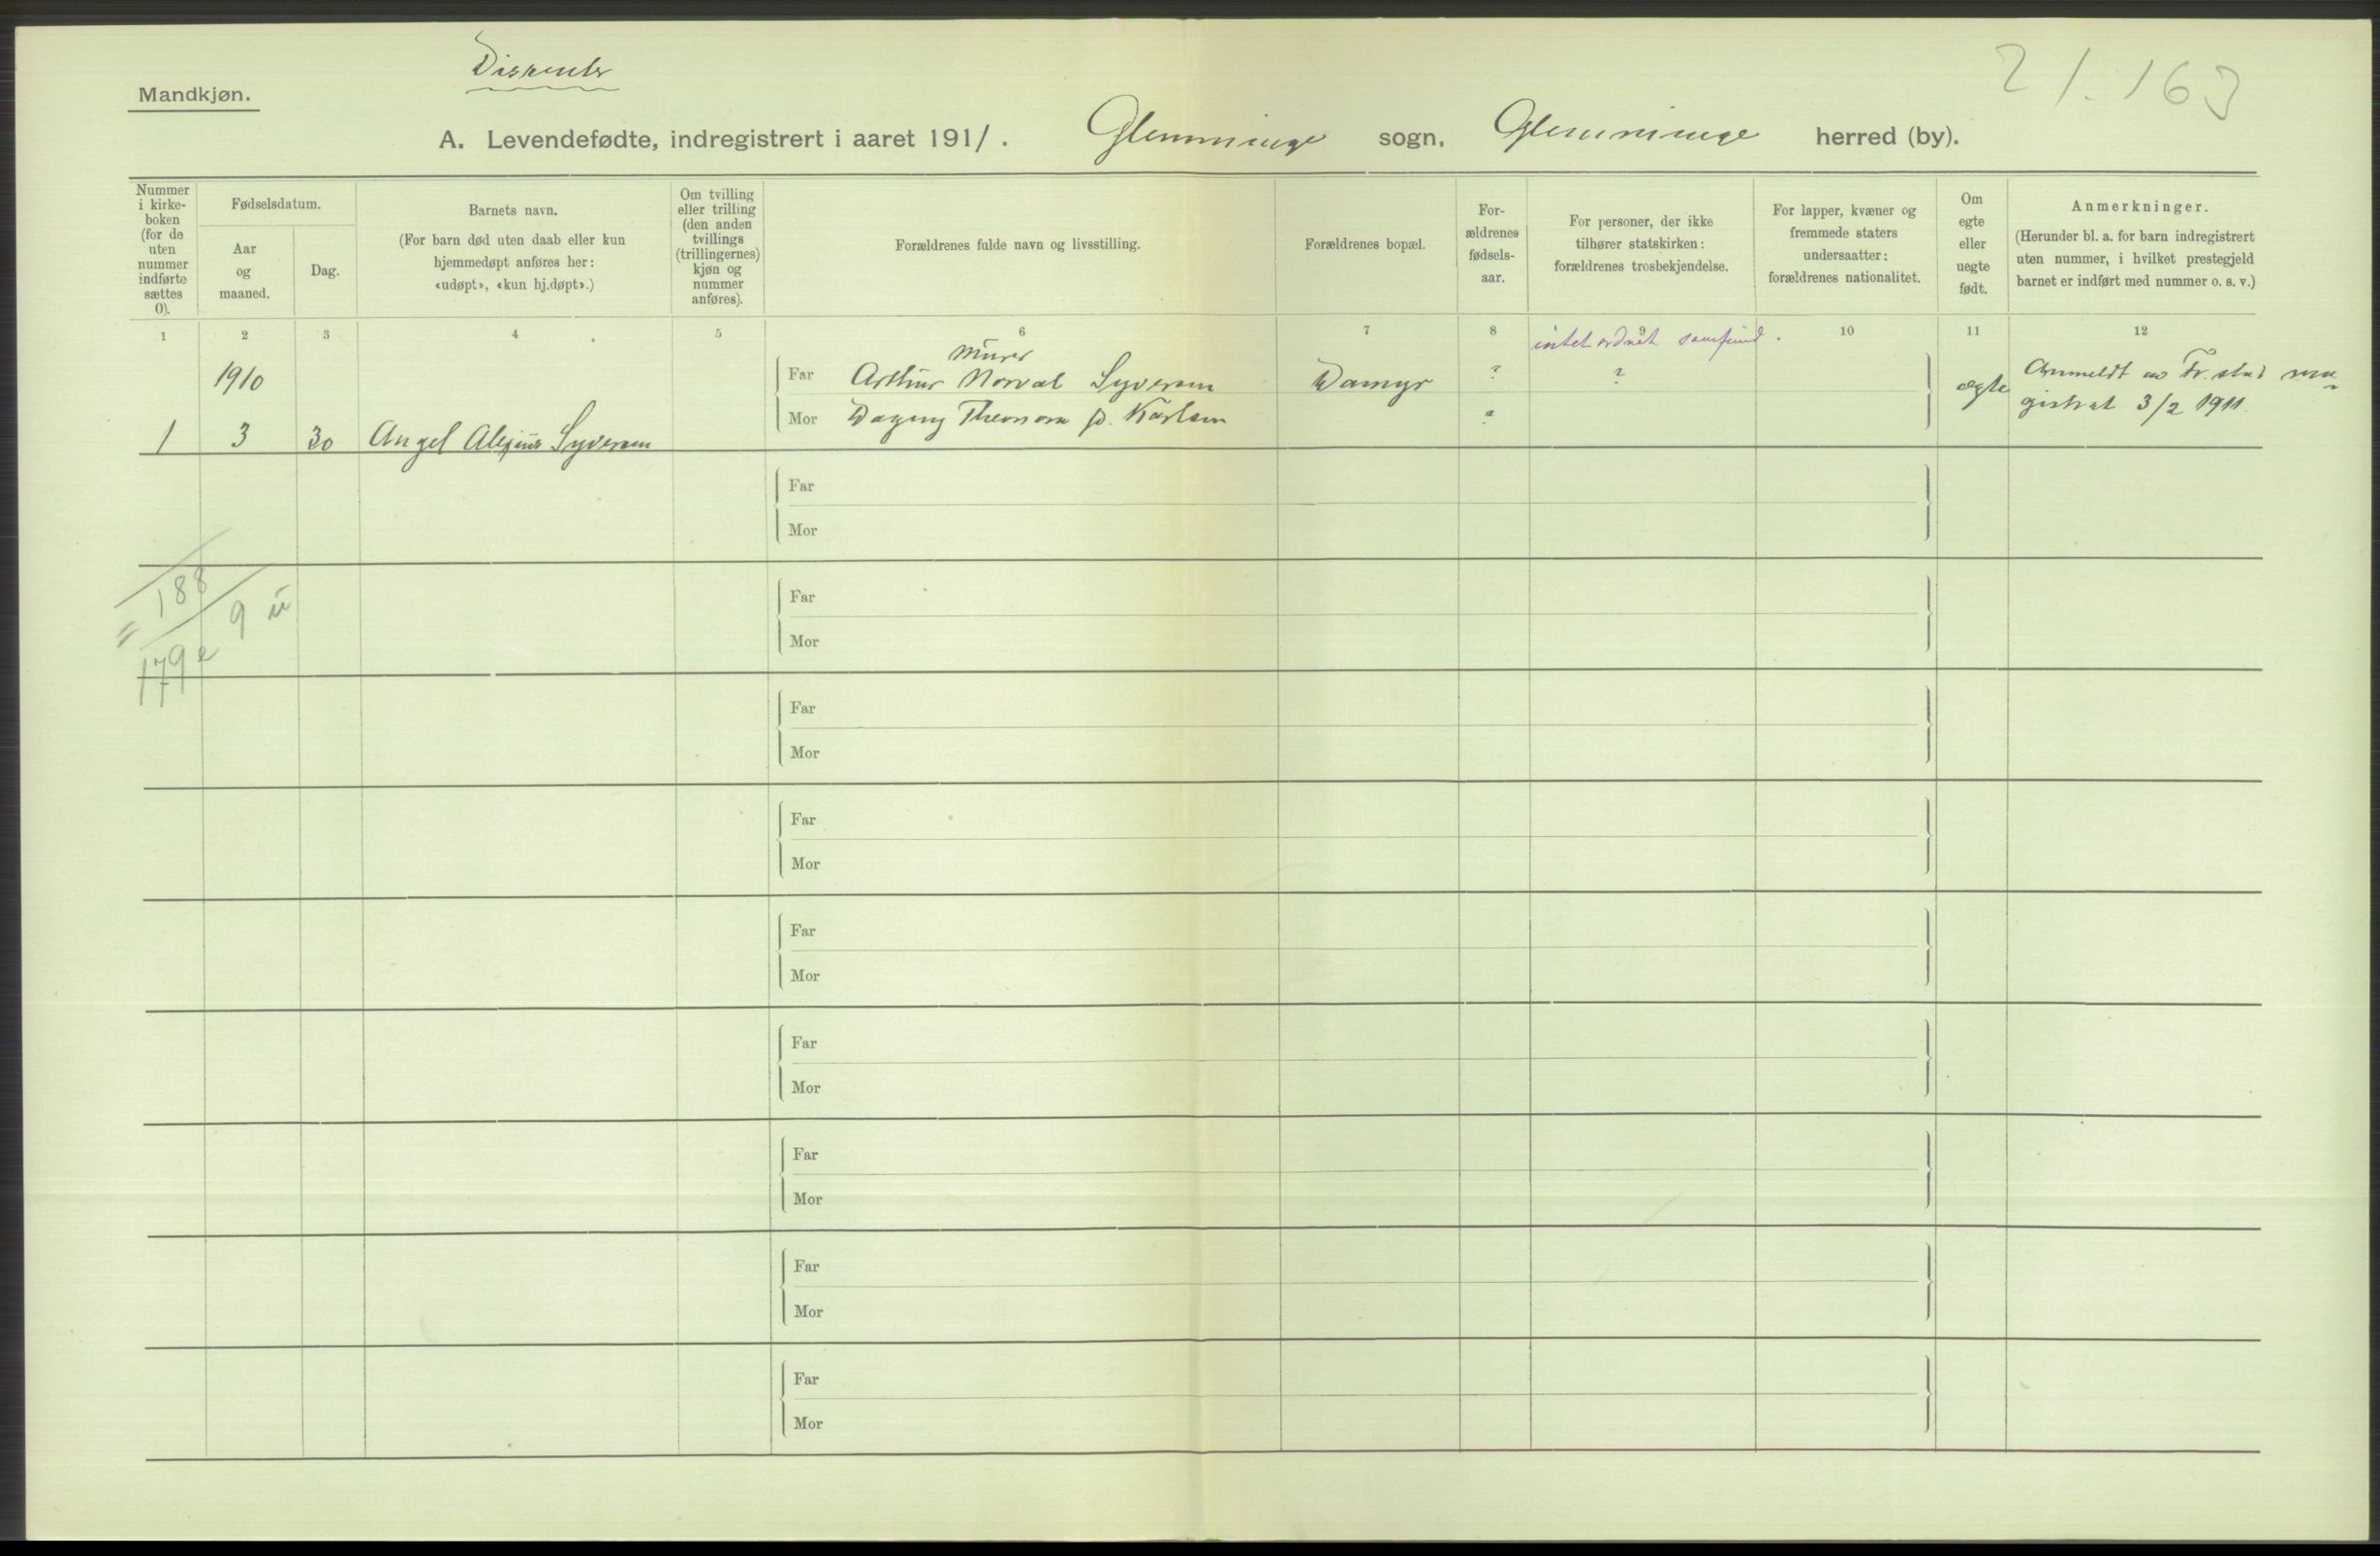 Dissenter
21.163
Mandkjøn.
A. Levendefødte, indregistrert i aaret 1911. Glemminge sogn, Glemminge herred (by).
Nummer i kirke- boken (for de uten nummer indførte sættes 0).
Fødselsdatum.
Aar og maaned.
Dag.
Barnets navn.
(For barn død uten daab eller kun
hjemmedøpt anføres her:
«udøpt», «kun hj.døpt».)
Om tvilling
eller trilling
(den anden
tvillings
(trillingernes)
kjøn og
nummer
anføres).
Forældrenes fulde navn og livsstilling.
Forældrenes bopæl.
For-
ældrenes
fødsels-
aar.
For personer, der ikke
tilhører statskirken:
forældrenes trosbekjendelse.
For lapper, kvæner og
fremmede staters
undersaatter:
forældrenes nationalitet.
Om
egte
eller
uegte
født.
Anmerkninger.
(Herunder bl. a. for barn indregistrert
uten nummer, i hvilket prestegjeld
barnet er indført med nummer o. s. v.)
1 2 3 4 5 6 7 8 9 10 11 12
intet ordnet samfund.
Murer
1910
Far Arthur Norval Syversen Damyr ? ? ægte Anmeldt av Fr.stad ma-
Mor Dagny Theonora f. Karlsen ? gistrat 3/2 1911.
1 3 30 Angel Alexius Syversen
Far
Mor
188
9 u
= 179 e
Far
Mor
Far
Mor
Far
Mor
Far
Mor
Far
Mor
Far
Mor
Far
Mor
Far
Mor